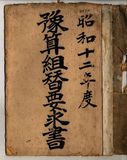 昭和十二年度
豫算組替要求書